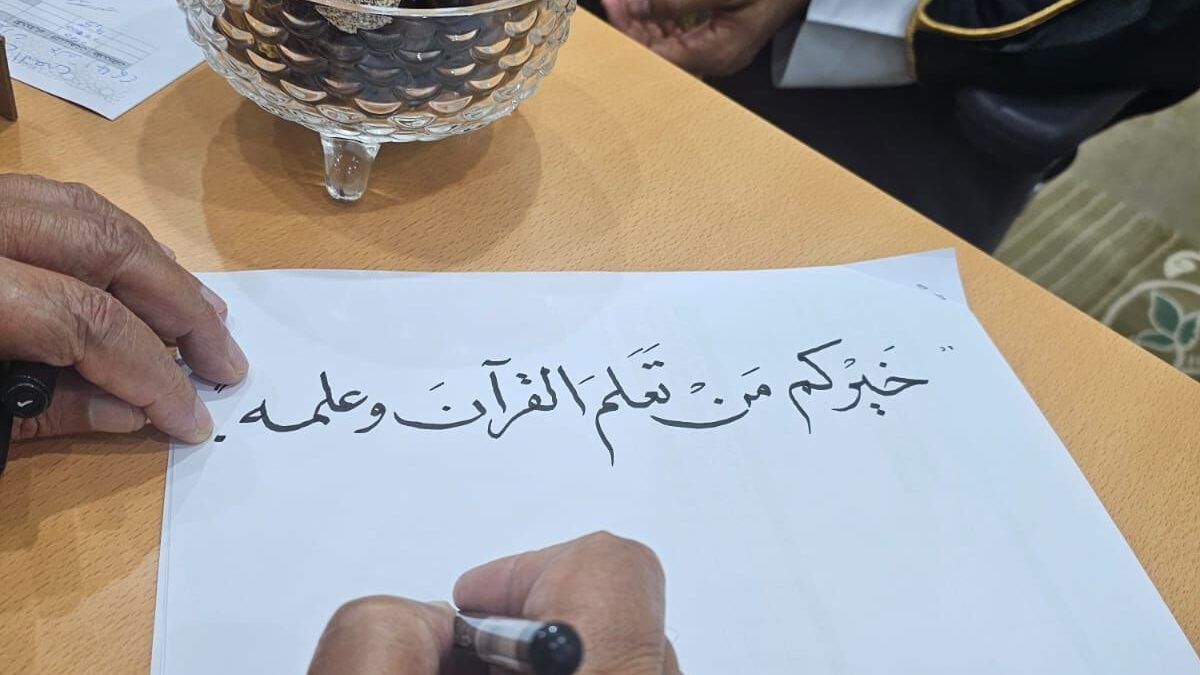 "خَيْركم مَنْ تَعَلمَ القرآنَ وعلمه."